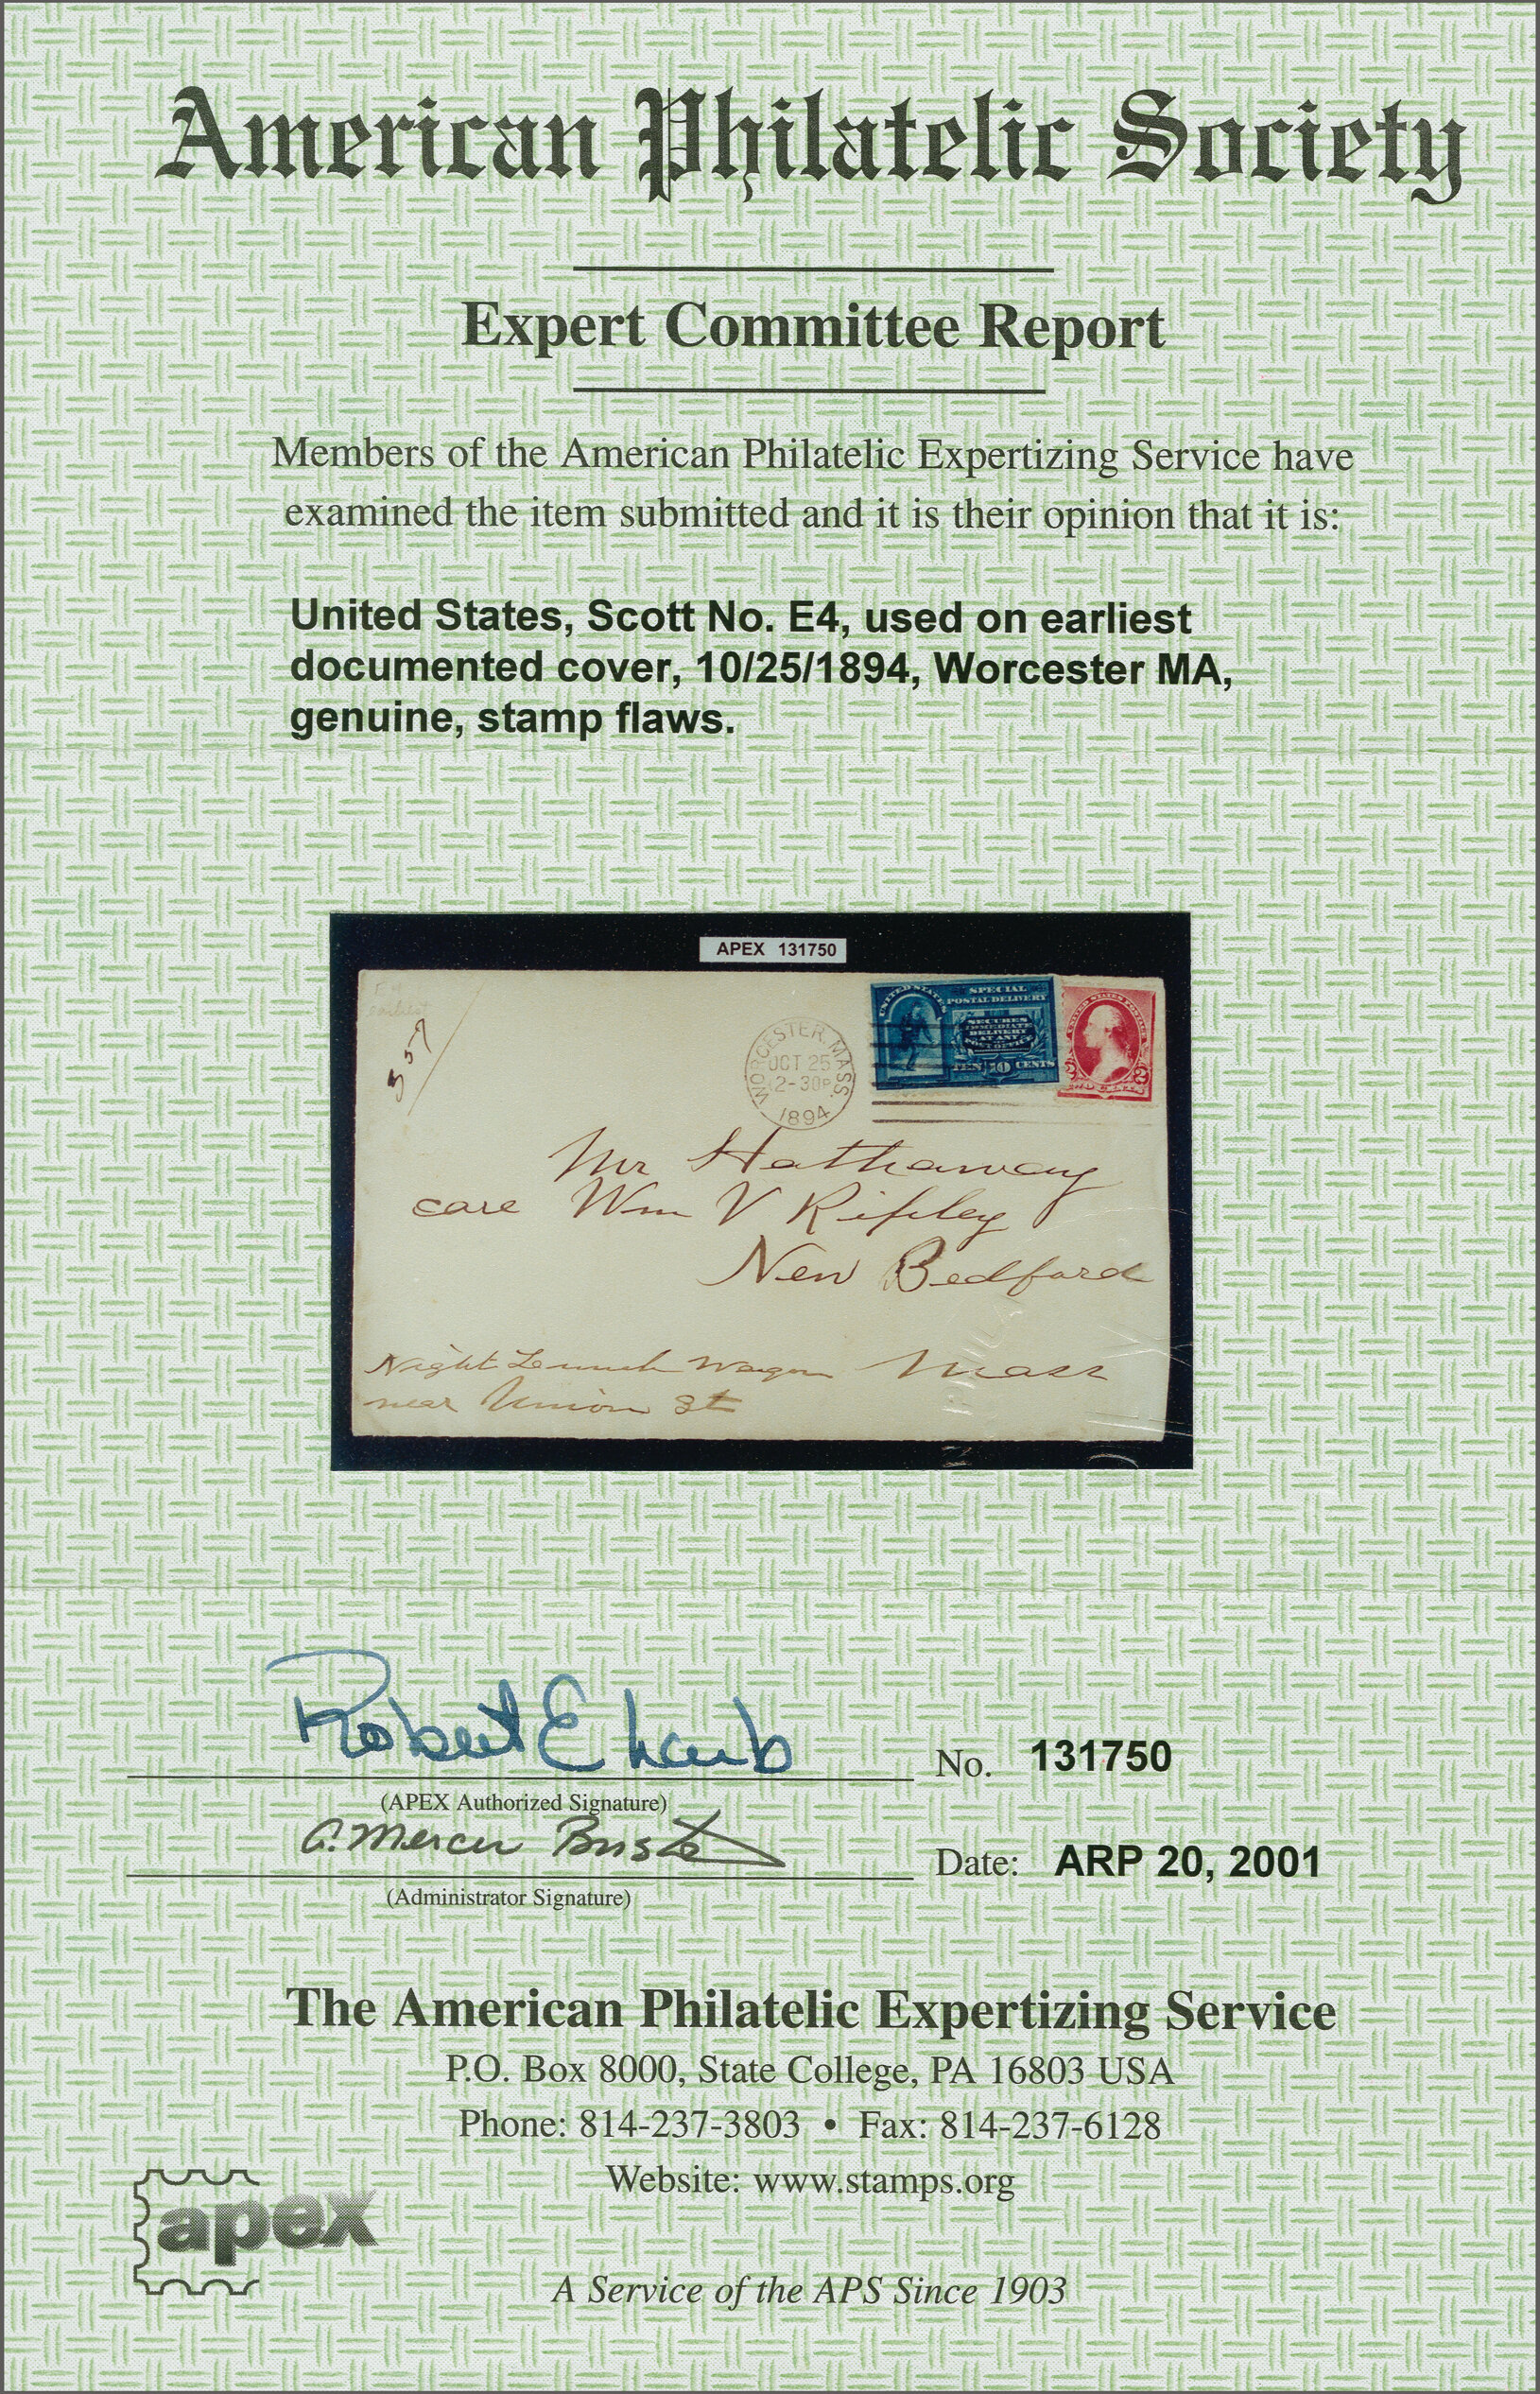 American Philatelic Society
Expert Committee Report
Members of the American Philatelic Expertizing Service have
examined the item submitted and it is their opinion that it is:
United States, Scott No. E4, used on earliest
documented cover, 10/25/1894, Worcester MA,
genuine, stamp flaws.
APEX 131750
E4
earliest
557
WORCESTER, MASS.
OCT 25
2-30P
1894
UNITED STATES
SPECIAL
POSTAL DELIVERY
SECURES
IMMEDIATE
DELIVERY
AT ANY
POST OFFICE
TEN 10 CENTS
UNITED STATES POSTAGE
2 2
TWO CENTS
Mr Hathaway
care Wm V Ripley
New Bedford
Mass
Night Lunch Wagon
near Union St
Robert E Lamb
(APEX Authorized Signature)
No. 131750
A. Mercer Bristow
(Administrator Signature)
Date: ARP 20, 2001
The American Philatelic Expertizing Service
P.O. Box 8000, State College, PA 16803 USA
Phone: 814-237-3803 • Fax: 814-237-6128
Website: www.stamps.org
apex
A Service of the APS Since 1903